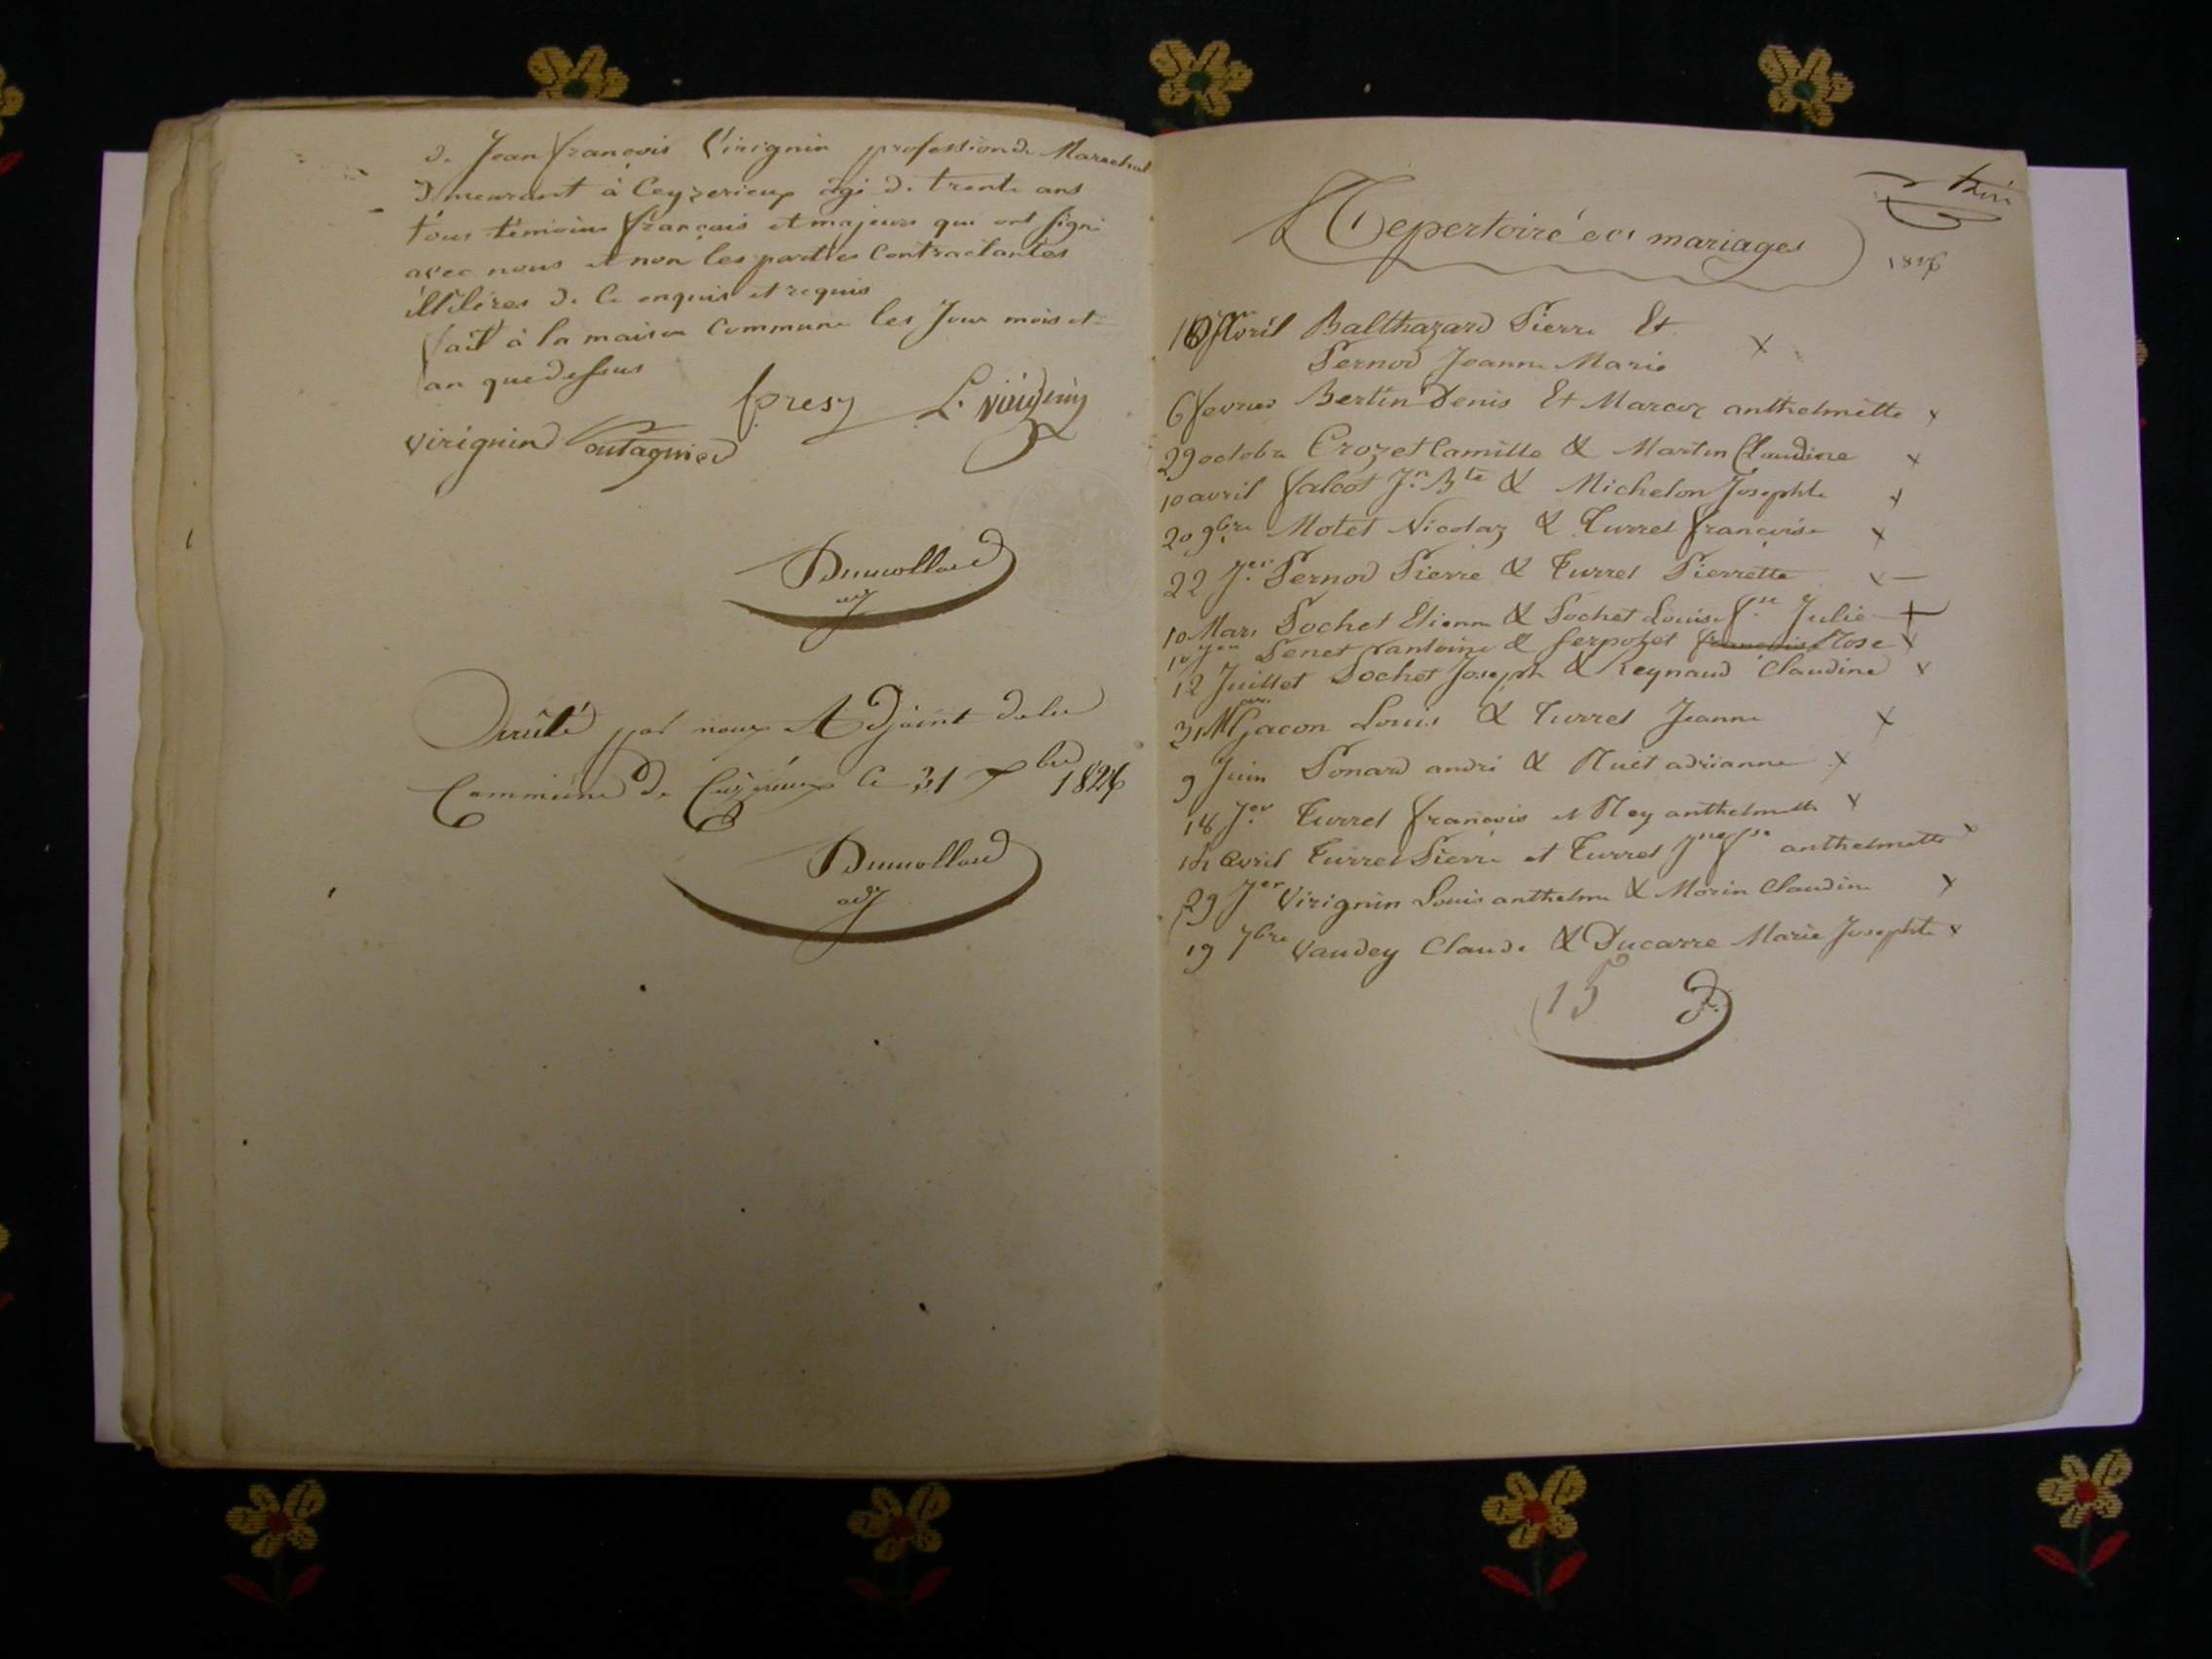 de Jean françois Virignin profession de Marechal
demeurant à Ceyzerieux agé de trente ans
tous temoins français et majeurs qui ont signé
avec nous et non les parties Contractantes
illiteres de Ce enquis et requis
fait à la maison Commune les Jour mois et
an que dessus
virignin
Dumollard
adj
par nous Adjoint de la
Commune de le 31 Xbre 1826
Dumollard
adj
Repertoire des mariages
1826
Avril Balthazard Pierre Et
Pernod Jeanne Marie
6 fevrier Bertin Denis Et anthelmette x
29 octobre Crozet Camille & Martin Claudine x
10 avril falcot Jn Bte & Michelon Josephte x
20 9bre Motet Nicolas & Turrel françoise x
22 Jer Pernod Pierre & Turrel Pierrette x
10 Mars Pochet Etienne & Pochet Louise fse Julie
10 Jer Penet antoine & Serpolet Rose x
12 Juillet Pochet Joseph & Reynaud Claudine x
Gacon Louis & Turrel Jeanne x
9 Juin Ponard andré & Ruet adrianne x
18 Jer Turrel françois et Rey anthelmette x
14 avril Turrel Pierre et Turrel anthelmette x
29 Jer Virignin Louis anthelme & Morin Claudine x
19 7bre Vaudey Claude & Ducarre Marie Josephte x
15